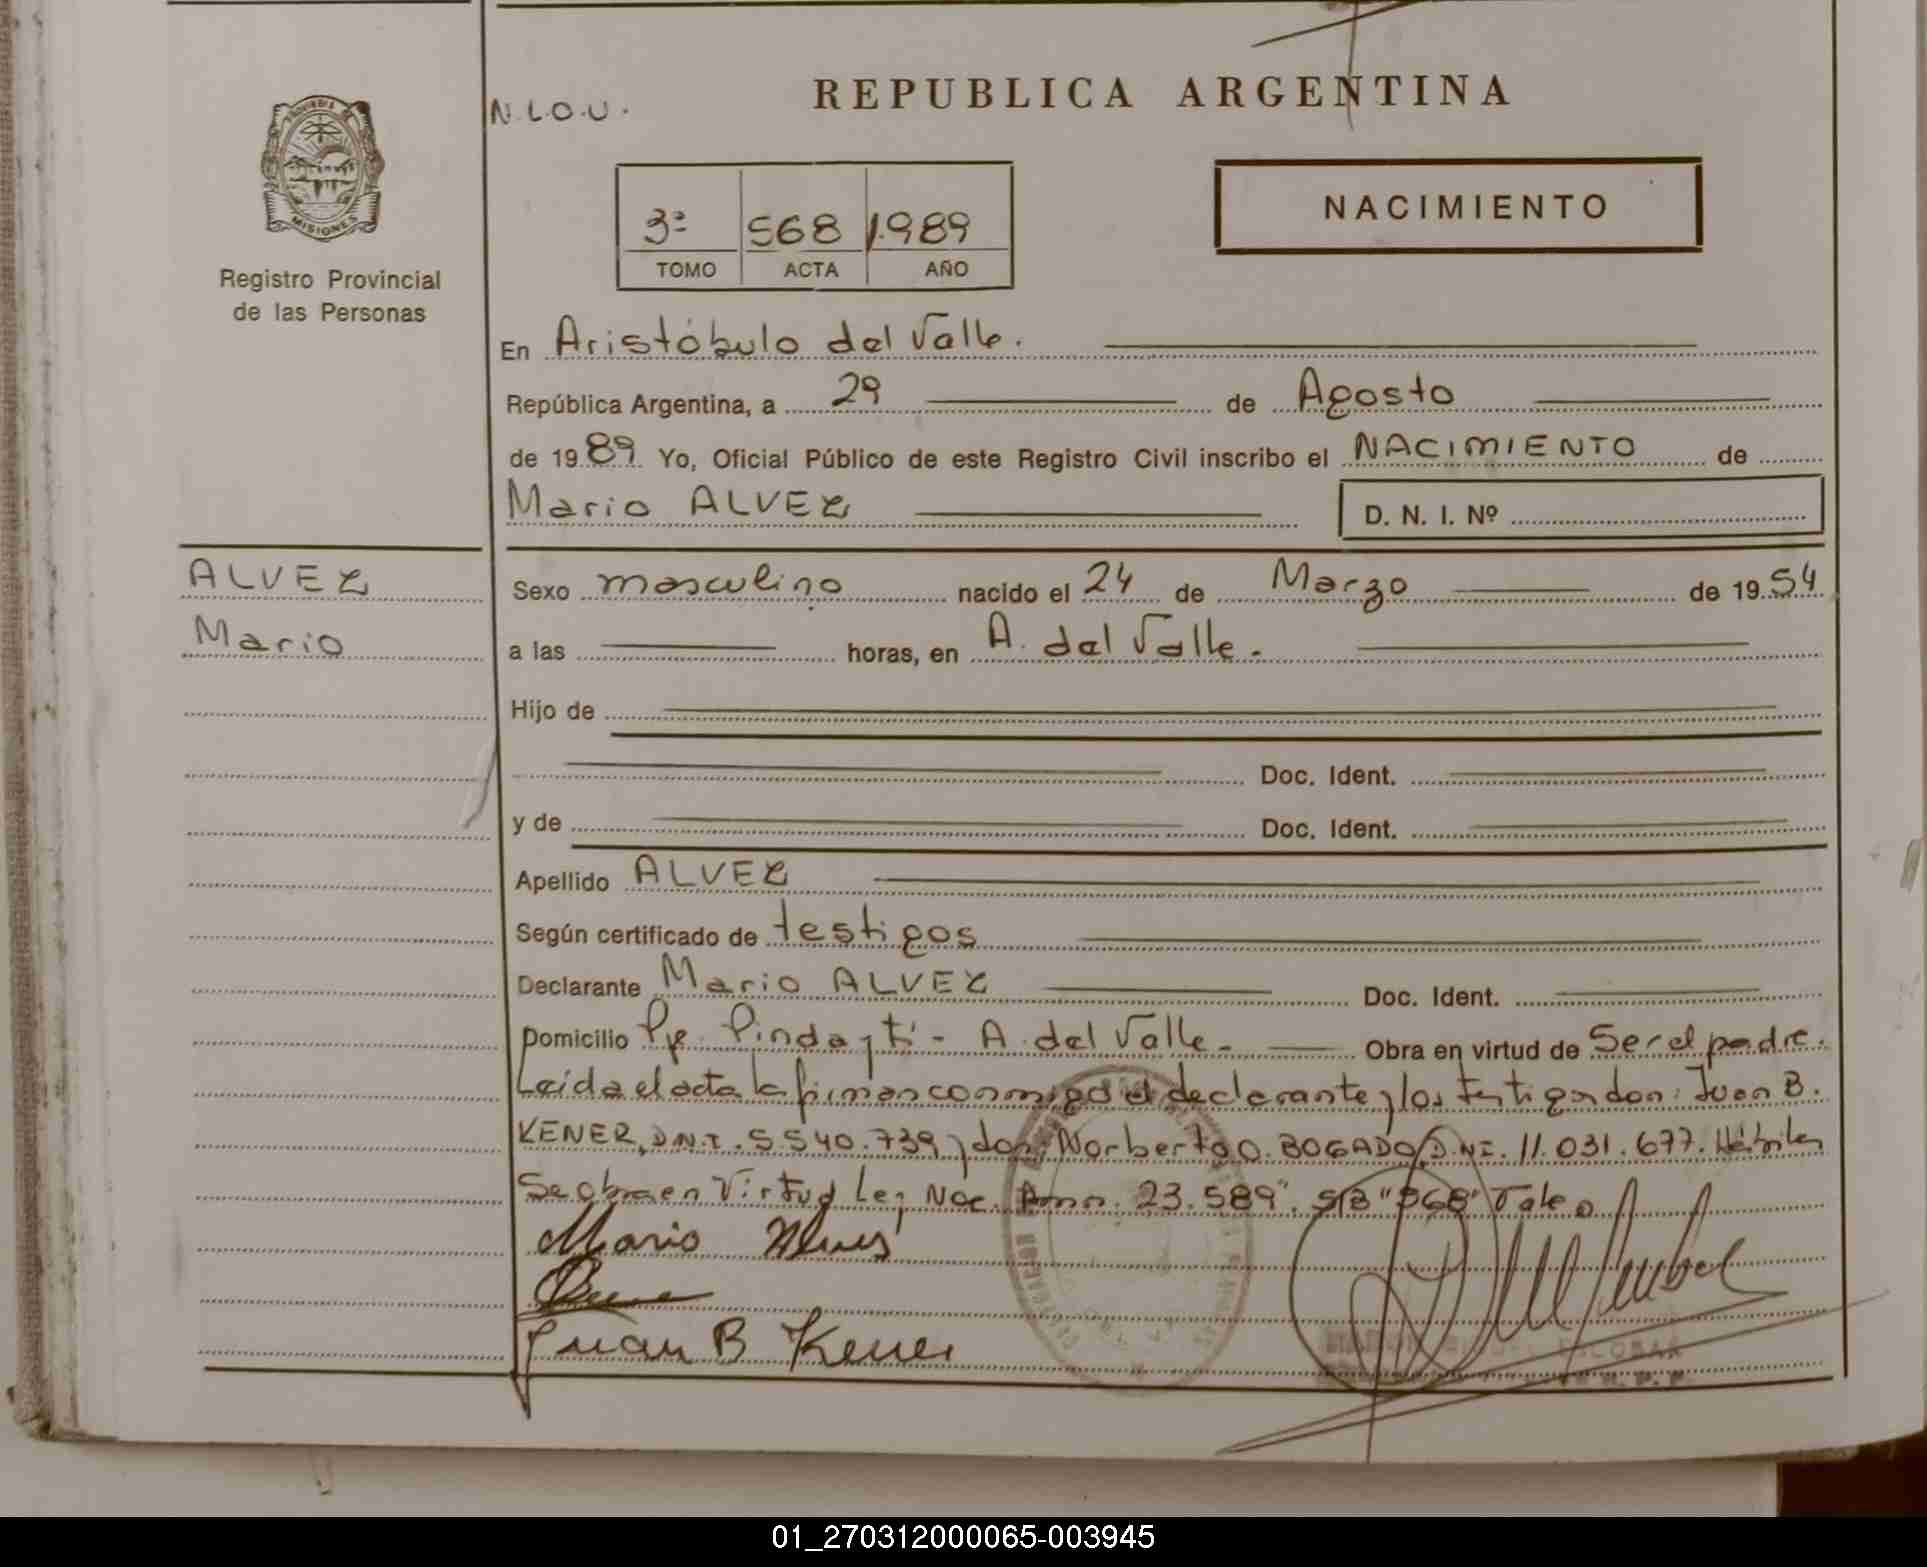 REPUBLICA ARGENTINA
N.L.O.U.
PROVINCIA
MISIONES
Registro Provincial
de las Personas
3ª 568 1.989
TOMO ACTA AÑO
NACIMIENTO
En Aristóbulo del Valle.
República Argentina, a 29 de Agosto
de 1989. Yo, Oficial Público de este Registro Civil inscribo el NACIMIENTO de
Mario ALVEZ D. N. I. Nº
ALVEZ
Mario
Sexo masculino nacido el 24 de Marzo de 1954
a las horas, en A. del Valle.
Hijo de
Doc. Ident.
y de Doc. Ident.
Apellido ALVEZ
Según certificado de testigos
Declarante Mario ALVEZ Doc. Ident.
Domicilio Pje. Pindayti - A. del Valle - Obra en virtud de Ser el padre.
Leída el acta la firman conmigo el declarante y los testigos don: Juan B.
KENER, D.N.I. 5.540.739 y don: Norberto O. BOGADO, D.N.I. 11.031.677. Hábiles
Se obra en Virtud Ley Nac. 23.589". S/B "568" Vale
Mario
Juan B Kener
ESCOBAR
01_270312000065-003945